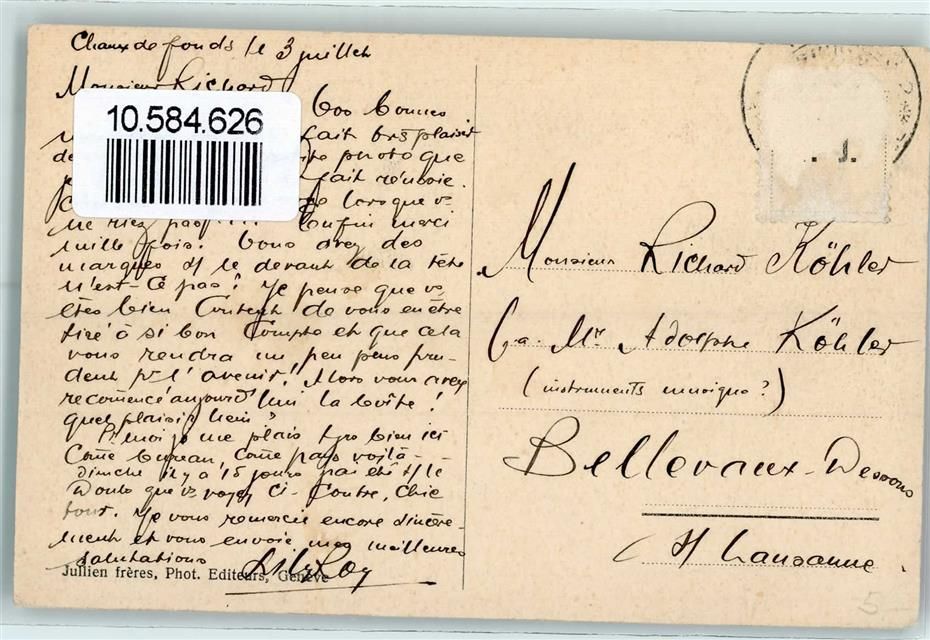 Chaux de fonds le 3 juillet
Monsieur Richard
Vos bonnes
fait très plaisir
de photo que
fait réussie.
lorsque v.
ne riez pas!!! Enfin merci
mille fois. Vous avez des
marques s/ le devant de la tête
n'est-ce pas? Je pense que vs
êtes bien content de vous en être
tiré à si bon compte et que cela
vous rendra un peu plus pru-
dent pr l'avenir! Alors vous avez
recommencé aujourd'hui la boîte!
quel plaisir hein?
P. moi je me plais trs bien ici
Côme bureau, côme pays voilà -
Dimche il y a 15 jours j'ai été s/ le
Doubs que vs voyez ci-contre, chic
tour. Je vous remercie encore sincère-
ment et vous envoie mes meilleures
salutations
Jullien frères, Phot. Editeurs, Genève
10.584.626
. J.
Monsieur Richard Köhler
Ca. Mr Adolphe Köhler
(instruments musique?)
Bellevaux-Dessous
s/ Lausanne
5